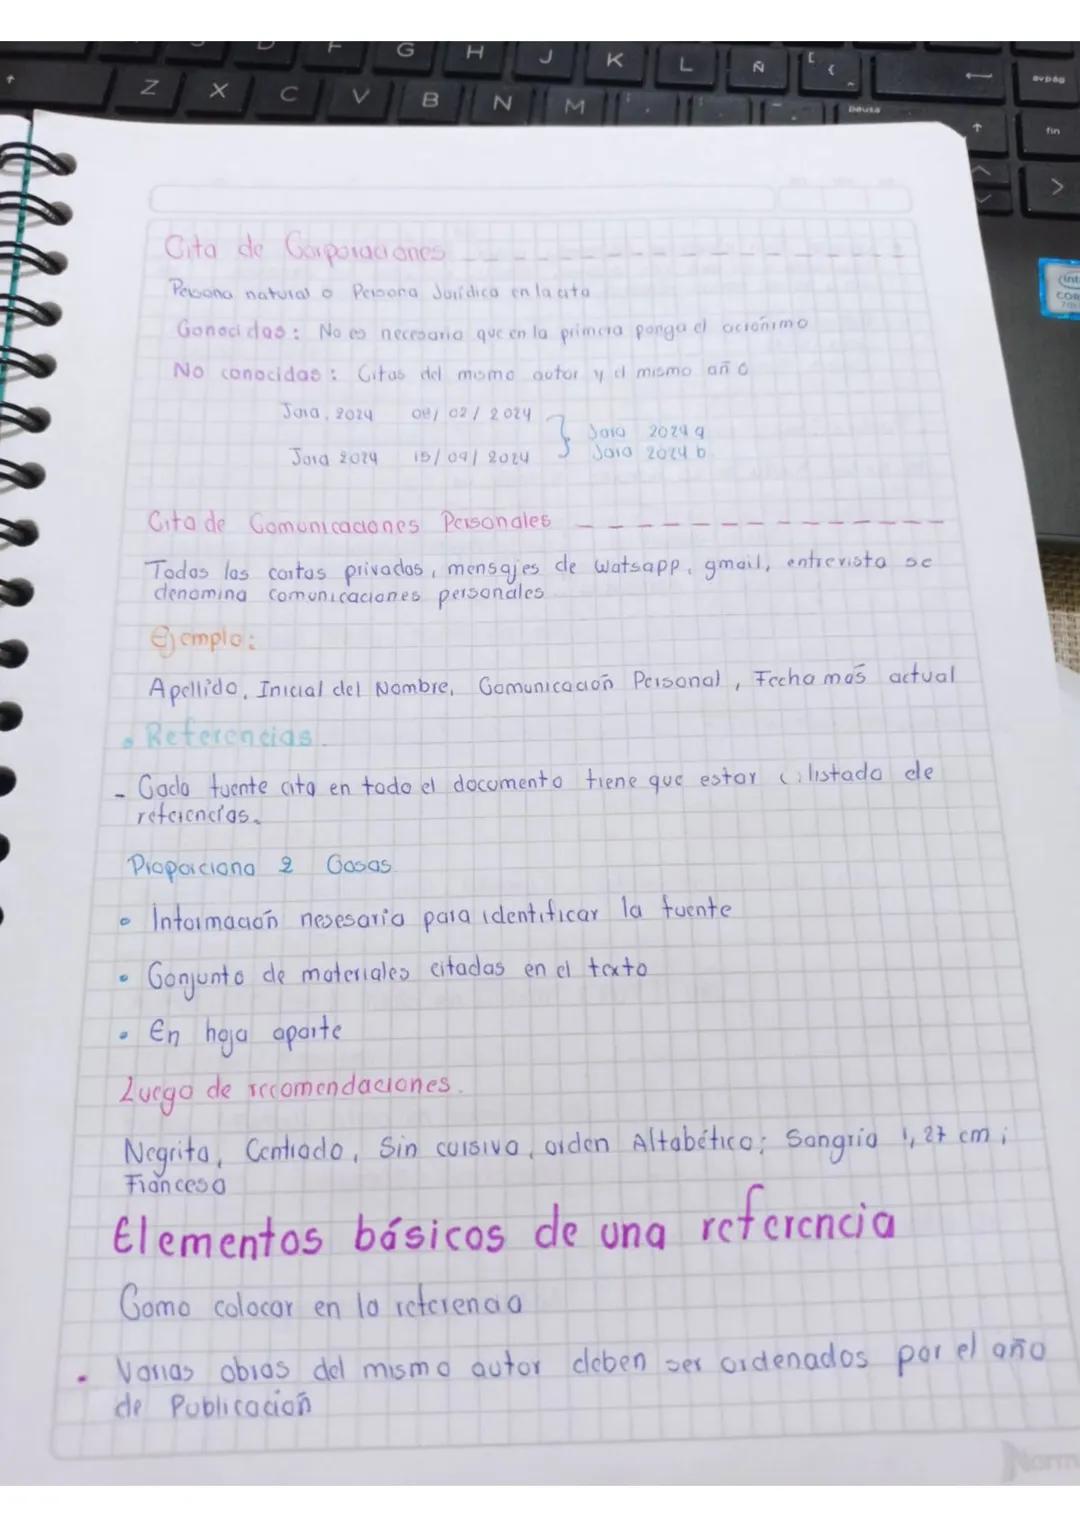 G H J K L Ñ [ {
Z X C V B N M
pausa
avpág
fin
Cita de Corporaciones
Persona natural o Persona Jurídica en la cita
Conocidas: No es necesaria que en la primera ponga el acrónimo
No conocidas: Citas del mismo autor y el mismo año
Jara, 2024 08/02/2024
Jara 2024 a
Jara 2024 15/09/2024
Jara 2024 b
Cita de Comunicaciones Personales
Todas las cartas privadas, mensajes de Watsapp, gmail, entrevista se
denomina comunicaciones personales
Ejemplo:
Apellido, Inicial del Nombre, Comunicación Personal, Fecha más actual
• Referencias.
- Cada fuente cita en todo el documento tiene que estar listado de
referencias.
Proporciona 2 Cosas
• Información nesesaria para identificar la fuente
• Conjunto de materiales citadas en el texto
• En hoja aparte
Luego de recomendaciones.
Negrita, Centrado, Sin cursiva, orden Alfabético; Sangria 1,27 cm;
Francesa
Elementos básicos de una referencia
Como colocar en la referencia
• Varias obras del mismo autor deben ser ordenados por el año
de Publicación
Norm